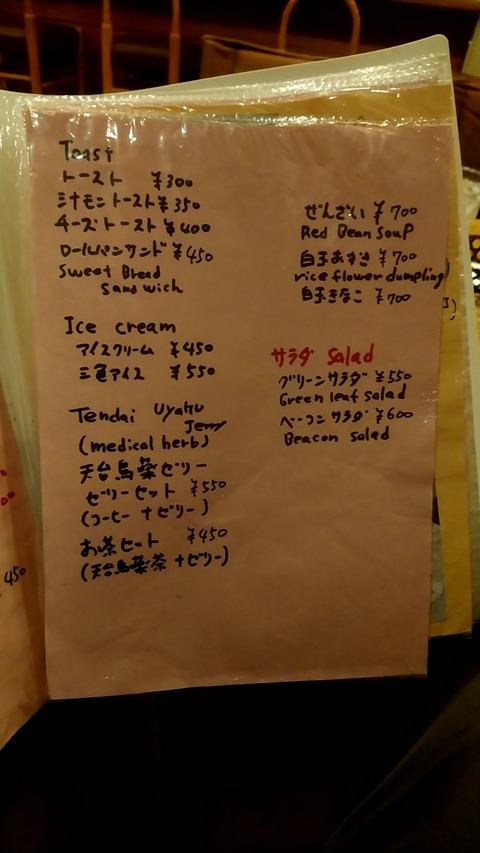 Toast
トースト ¥300
シナモントースト ¥350
チーズトースト ¥400
ロールパンサンド ¥450
Sweet Bread
Sandwich
Ice cream
アイスクリーム ¥450
三色アイス ¥550
Tendai Uyaku
Jerry
(medical herb)
天台烏薬ゼリー
ゼリーセット ¥550
(コーヒー+ゼリー)
お茶セット ¥450
(天台烏薬茶+ゼリー)
ぜんざい ¥700
Red Bean Soup
白玉あずき ¥700
rice flower dumpling)
白玉きなこ ¥700
サラダ Salad
グリーンサラダ ¥550
Green leaf salad
ベーコンサラダ ¥600
Beacon salad
450